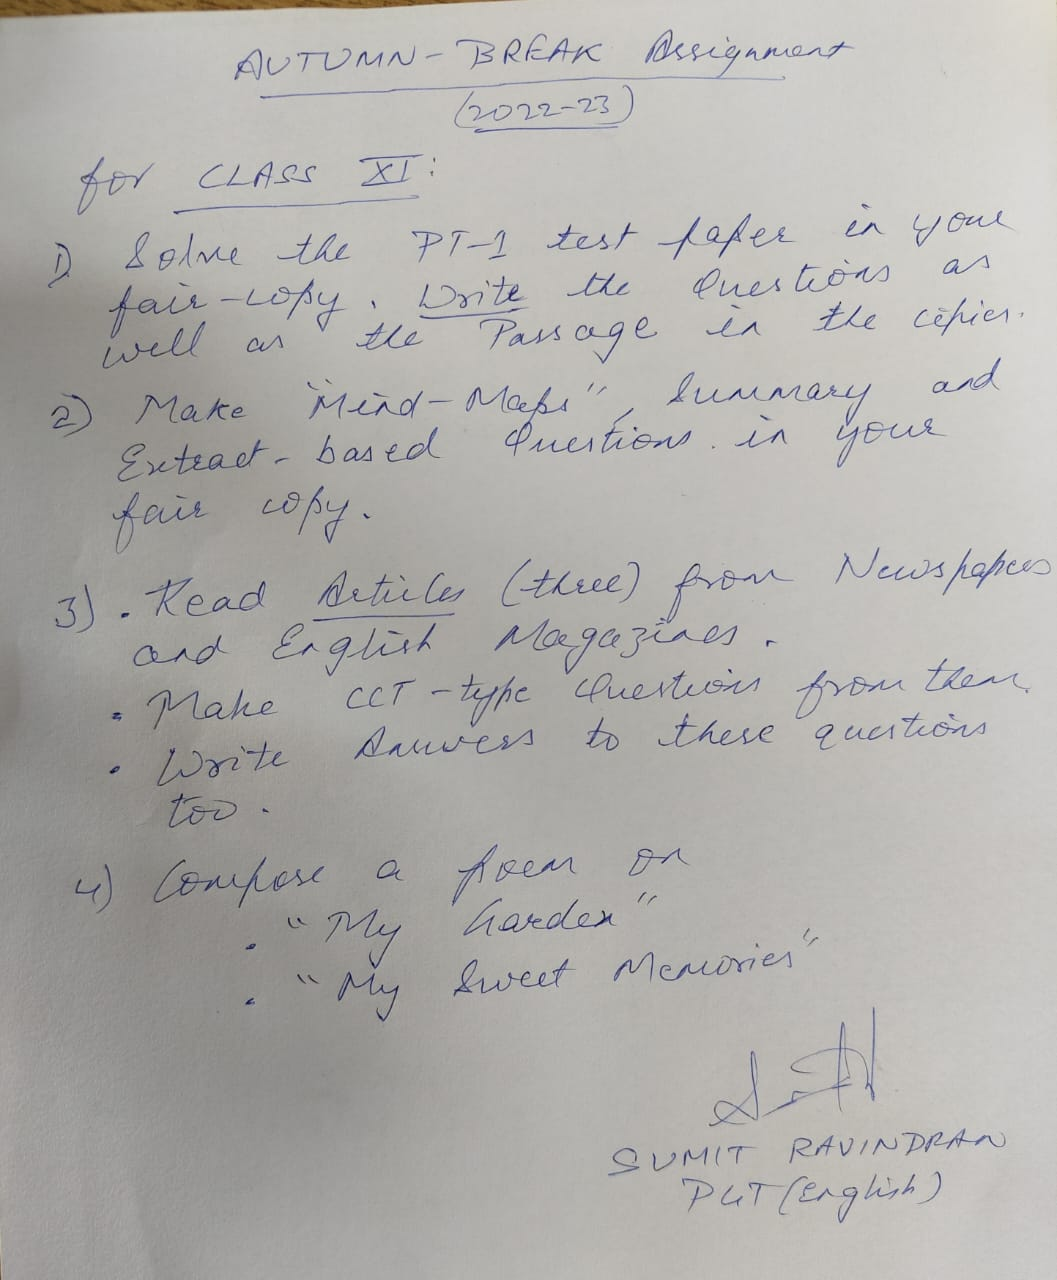 AUTUMN-BREAK Assignment
(2022-23)
for CLASS XI:
1) Solve the PT-1 test paper in your
fair-copy. Write the Questions as
well as the Passage in the copies.
2) Make "Mind-Maps", Summary and
Extract-based Questions in your
fair copy.
3) . Read Articles (three) from Newspapers
and English Magazines.
. Make CCT-type Questions from them.
. Write Answers to these questions
too.
4) Compose a poem on
. "My Garden"
. "My Sweet Memories"
SUMIT RAVINDRAN
PGT (English)